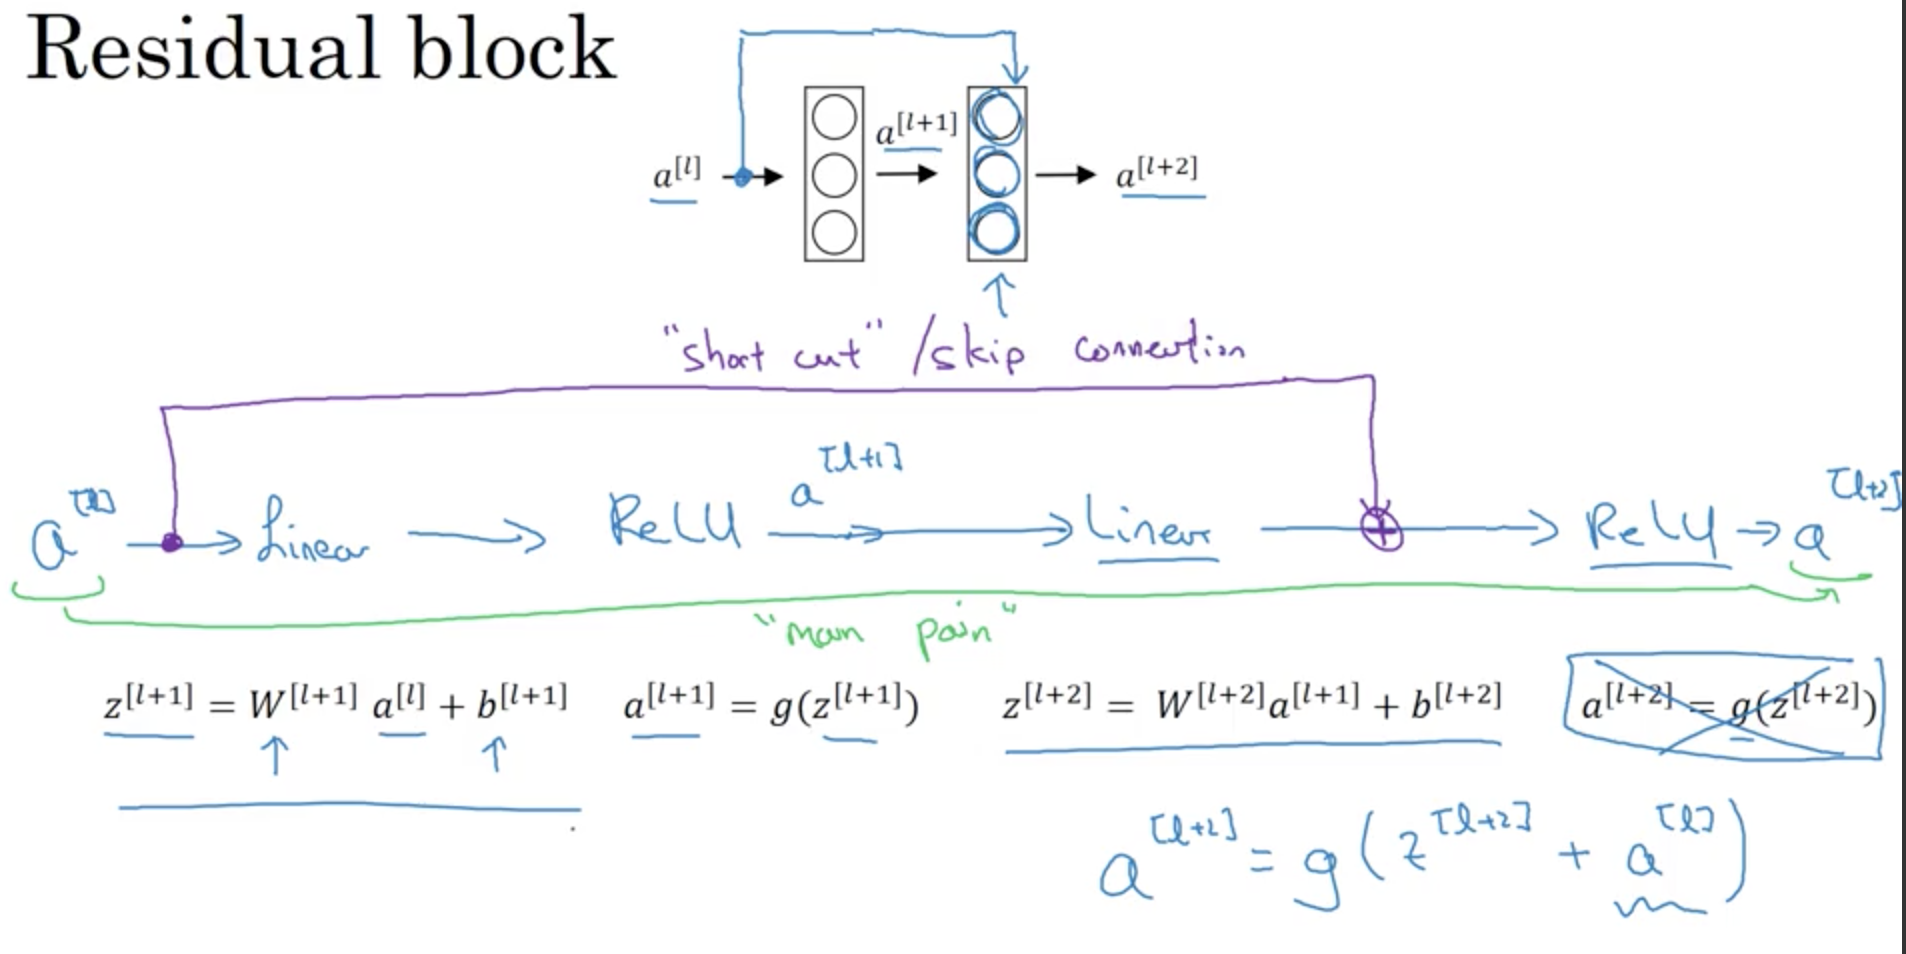 Residual block
a[l]
a[l+1]
a[l+2]
"short cut" / skip connection
a[l] → Linear → ReLU a[l+1] → Linear → ReLU → a[l+2]
"main
z[l+1] = W[l+1] a[l] + b[l+1] a[l+1] = g(z[l+1]) z[l+2] = W[l+2]a[l+1] + b[l+2] a[l+2] = g(z[l+2])
a[l+2] = g(z[l+2] + a[l])